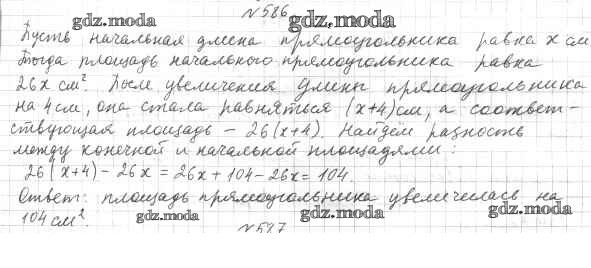 №586
gdz.moda gdz.moda
Пусть начальная длина прямоугольника равна x см
Тогда площадь начального прямоугольника равна
26x см². После увеличения длины прямоугольника
на 4 см, она стала равняться (x+4) см, а соответ-
ствующая площадь – 26(x+4). Найдём разность
между конечной и начальной площадями:
26(x+4) - 26x = 26x + 104 - 26x = 104.
Ответ: площадь прямоугольника увеличилась на
104 см².
gdz.moda gdz.moda gdz.moda
№587